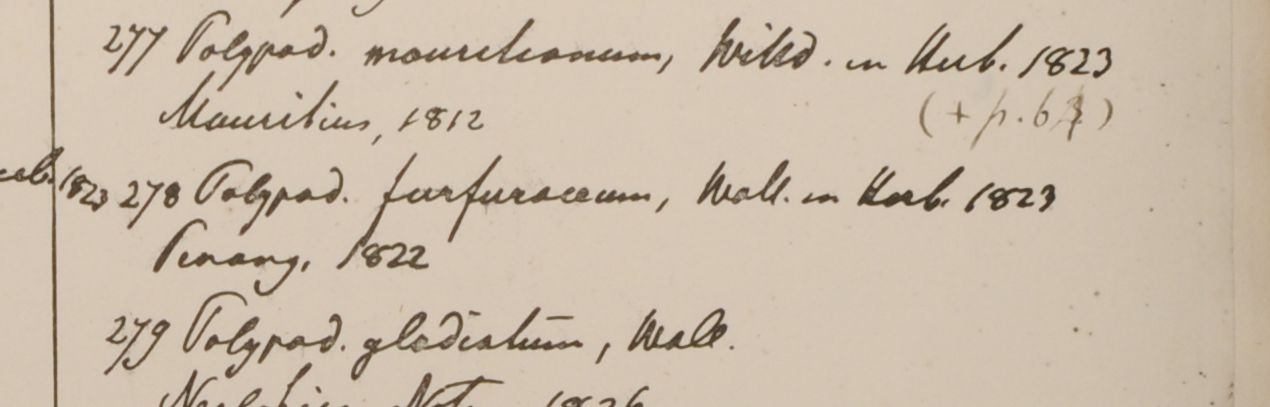 277 Polypod. mauritianum, Willd. in Herb. 1823
Mauritius, 1812
(+ p. 64)
1823 278 Polypod. furfuraceum, Wall. in Herb. 1823
Penang, 1822
279 Polypod. gladiatum, Wall.